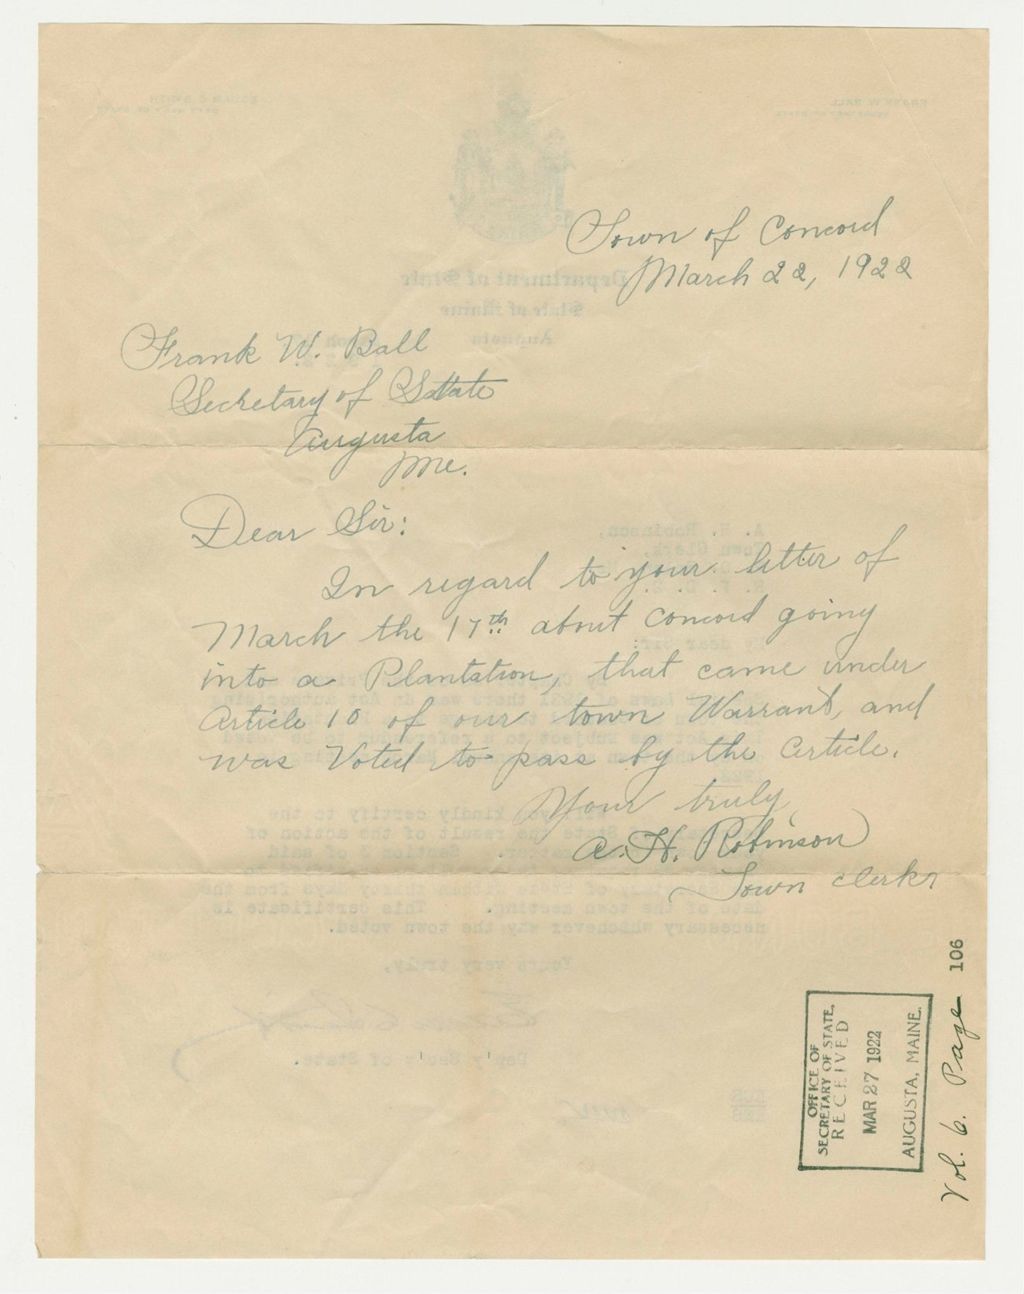 Town of Concord
March 22, 1922
Frank W. Ball
Secretary of State
Augusta
Me.
Dear Sir:
In regard to your letter of
March the 17th about Concord going
into a Plantation, that came under
Article 10 of our town Warrant, and
was Voted to pass by the Article.
Your truly,
A. H. Robinson
Town Clerk
OFFICE OF
SECRETARY OF STATE,
RECEIVED
MAR 27 1922
AUGUSTA, MAINE.
Vol. 6. Page 106